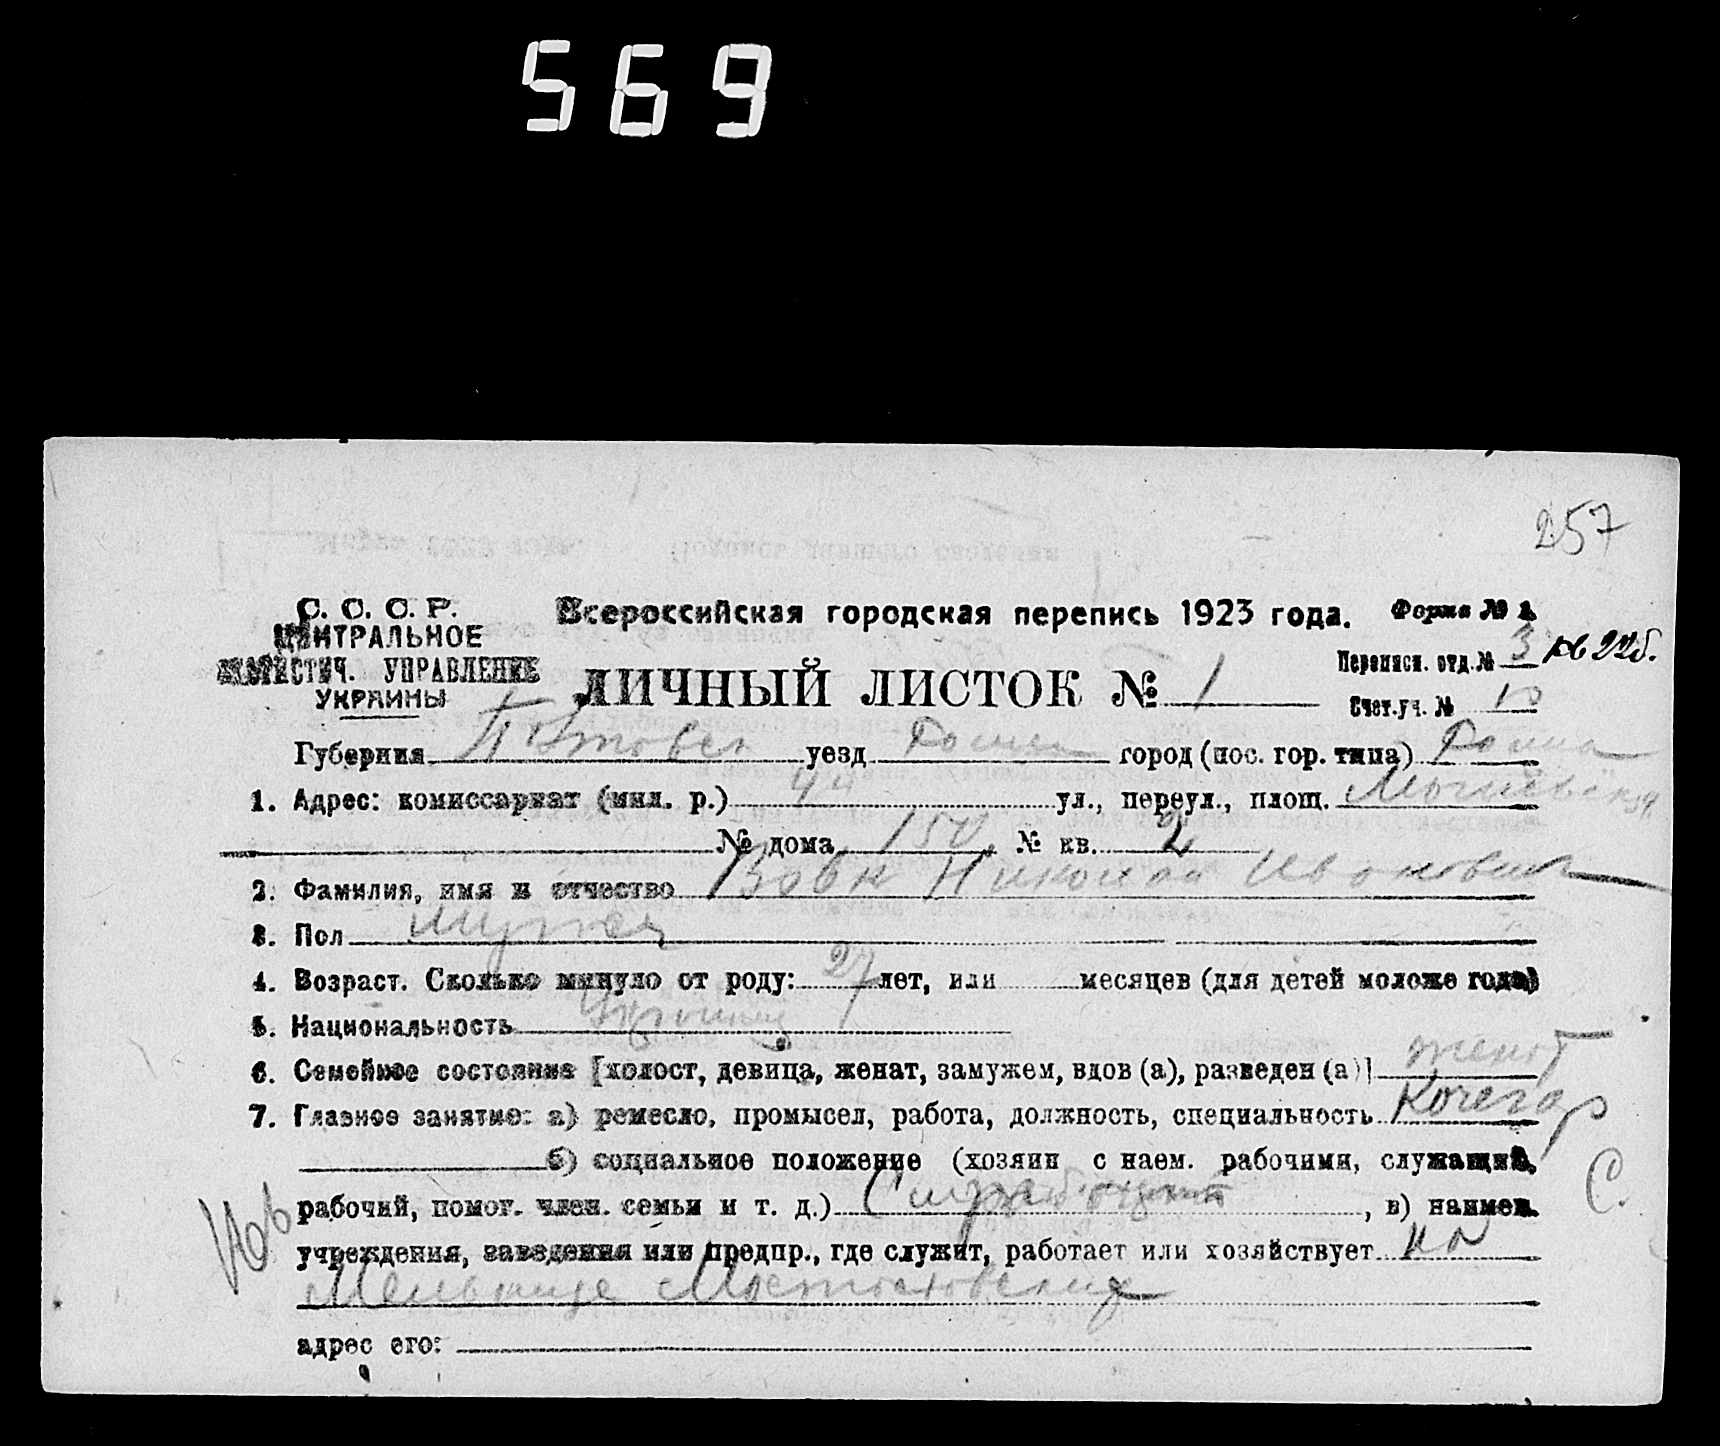 569
257
С. С. С. Р.
ЦЕНТРАЛЬНОЕ
СТАТИСТИЧ. УПРАВЛЕНИЕ
УКРАИНЫ
Всероссийская городская перепись 1923 года.
Форма № 1.
ЛИЧНЫЙ ЛИСТОК № 1
Переписн. отд. № 3 кв 22б.
Счет. уч. № 10
Губерния Полтовск уезд Ромен город (пос. гор. типа) Ромна
1. Адрес: комиссариат (мил. р.) ул., переул., площ.
№ дома 150 № кв. 2
2. Фамилия, имя и отчество Вовк Николай Ивонович
3. Пол мужск
4. Возраст. Сколько минуло от роду: 27 лет, или месяцев (для детей моложе года)
5. Национальность Украинец
6. Семейное состояние [холост, девица, женат, замужем, вдов (а), разведен (а)] женат
7. Главное занятие: а) ремесло, промысел, работа, должность, специальность Кочегар
б) социальное положение (хозяин с наем. рабочими, служащий,
рабочий, помог. член. семьи и т. д.) , в) наимен. С.
учреждения, заведения или предпр., где служит, работает или хозяйствует на
Мельнице
адрес его: